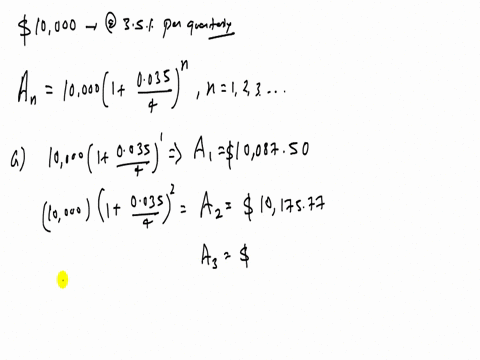 $10,000 → @ 3.5% per quarterly
Aₙ = 10,000(1 + 0.035/4)ⁿ, n = 1, 2, 3 ...
a) 10,000(1 + 0.035/4)¹ => A₁ = $10,087.50
(10,000) (1 + 0.035/4)² = A₂ = $10,175.77
A₃ = $